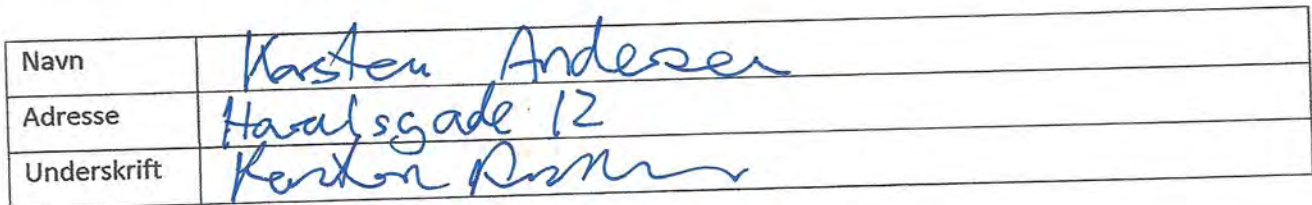 Navn Karsten Andersen
Adresse Haralsgade 12
Underskrift Karsten